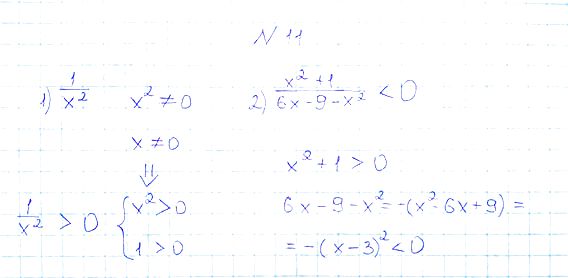 N 11
1) 1/x² x² ≠ 0
x ≠ 0
⇓
1/x² > 0 { x² > 0
1 > 0
2) (x² + 1)/(6x - 9 - x²) < 0
x² + 1 > 0
6x - 9 - x² = -(x² - 6x + 9) =
= -(x - 3)² < 0